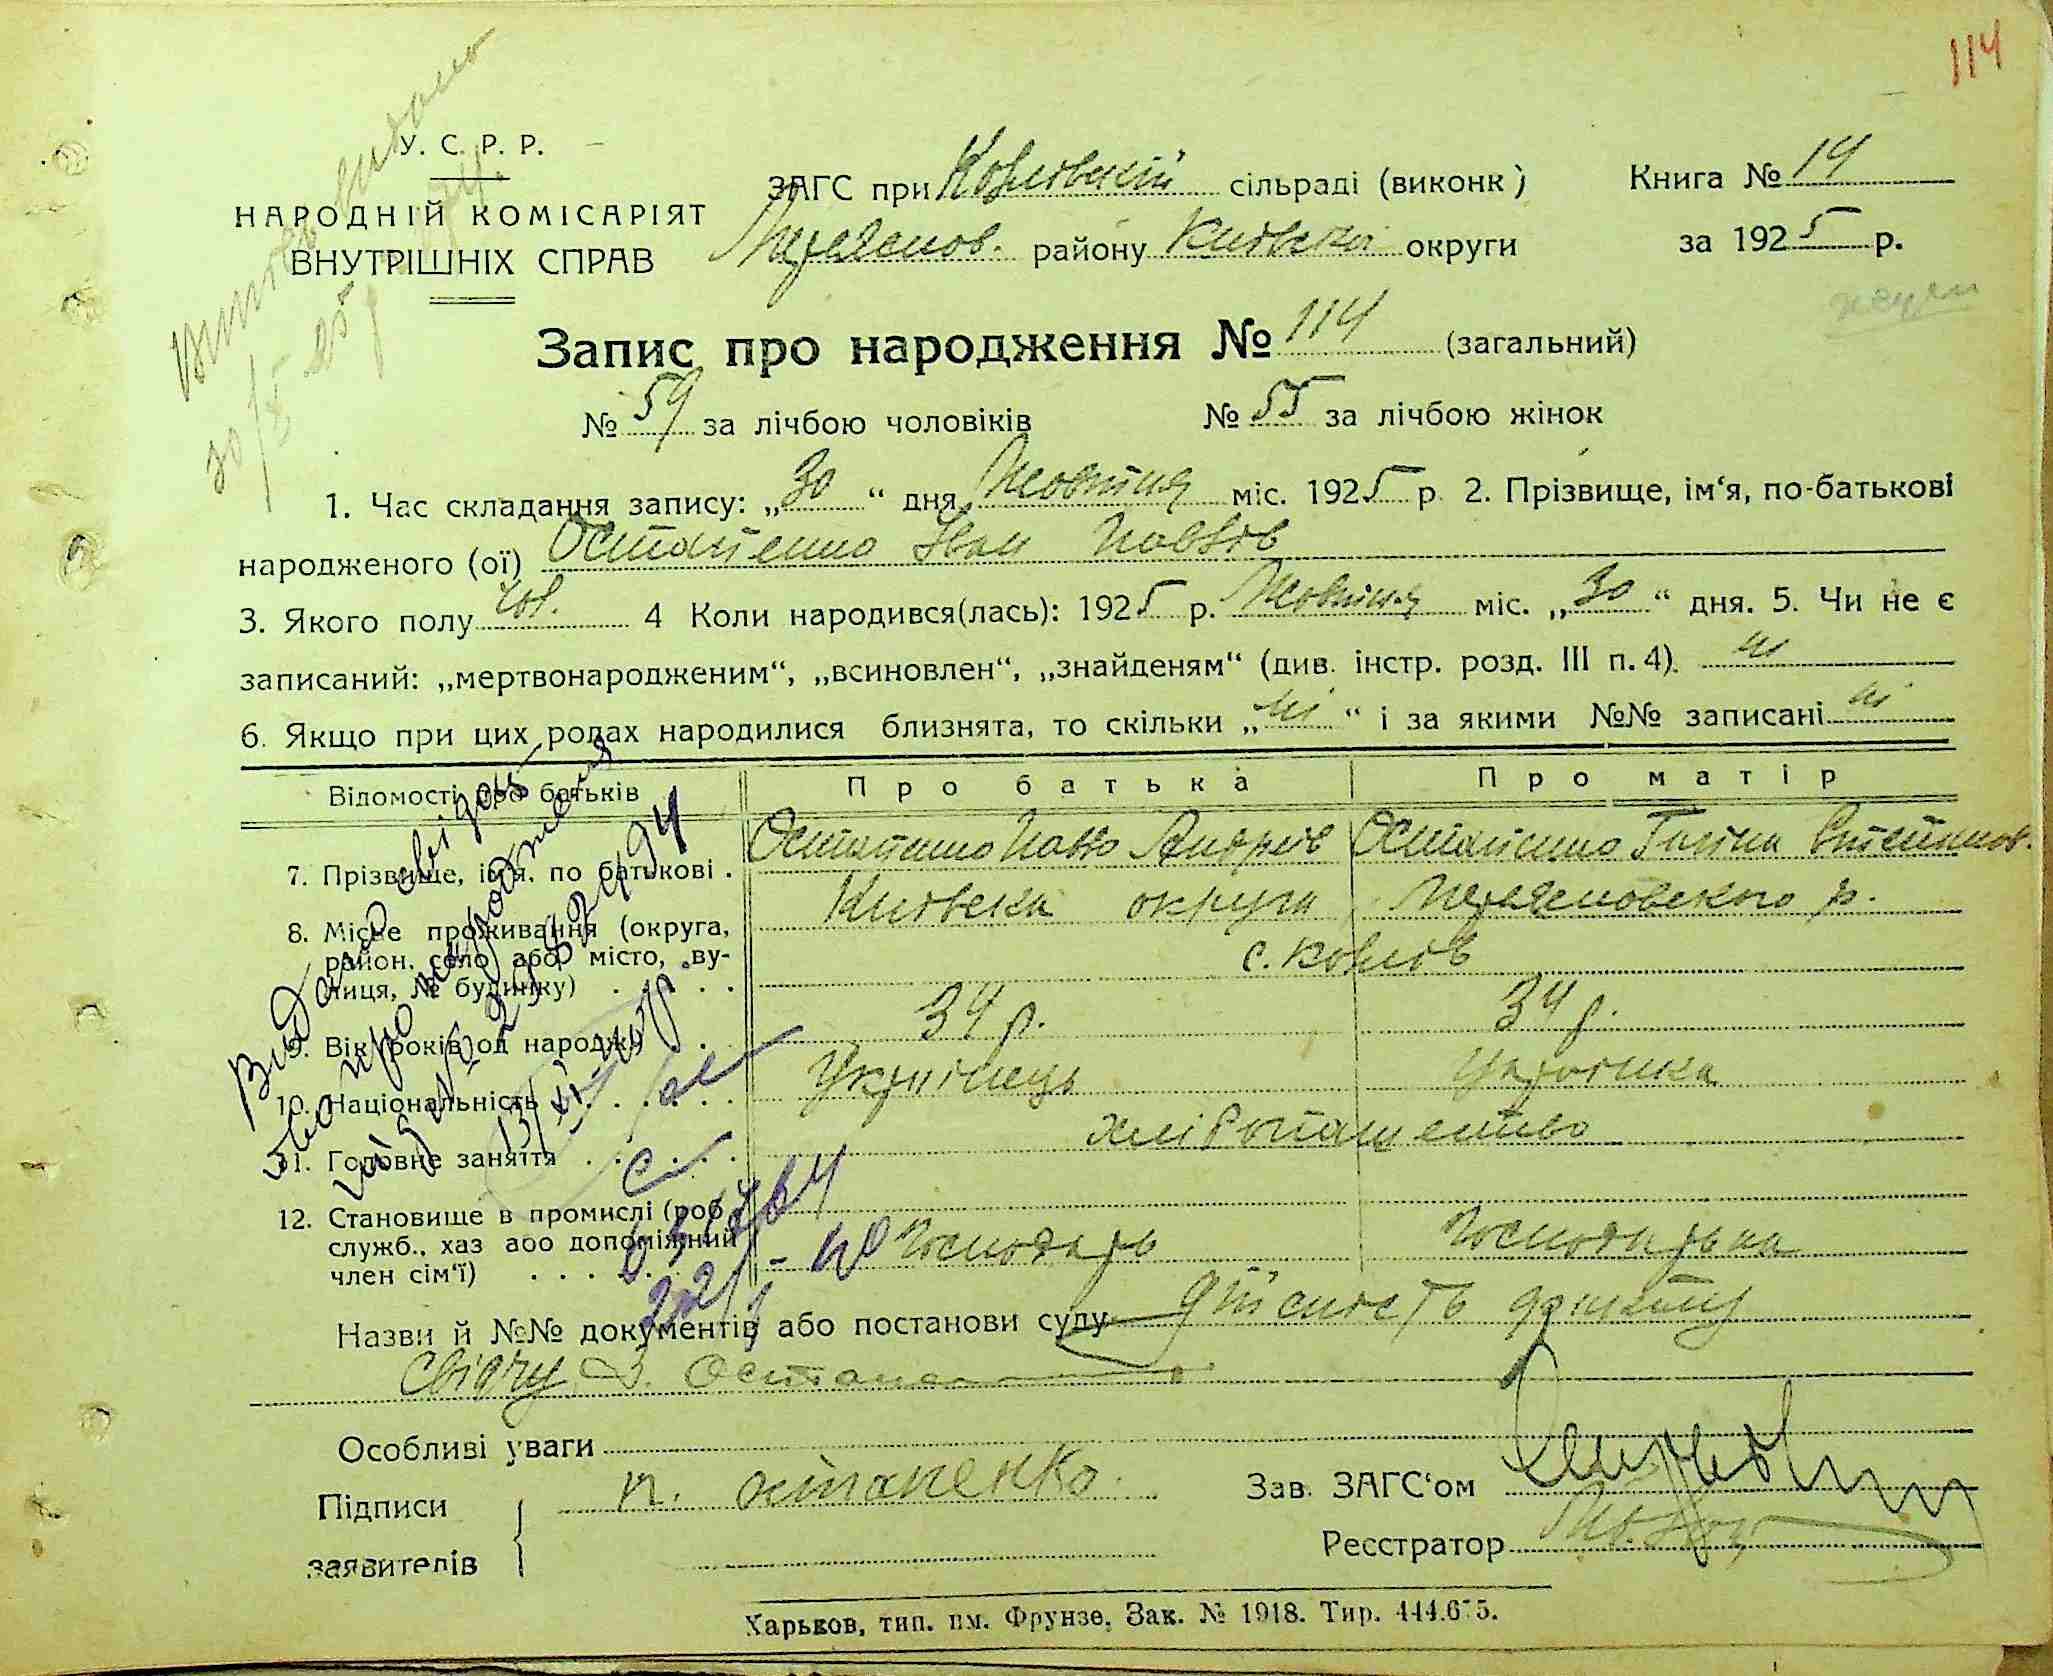 114
У. С. Р. Р.
НАРОДНІЙ КОМІСАРІЯТ
ВНУТРІШНІХ СПРАВ
ЗАГС при Козлівскій сільраді (виконк)
Переяслов. району Київської округи
Книга № 14
за 1925 р.
Запис про народження № 114 (загальний)
№ 59 за лічбою чоловіків № 55 за лічбою жінок
1. Час складання запису: „30“ дня Жовтня міс. 1925 р. 2. Прізвище, ім‘я, по-батькові
народженого (ої) Остапенко Іван Павлов
3. Якого полу чол. 4 Коли народився(лась): 1925 р. Жовтня міс. „30“ дня. 5. Чи не є
записаний: „мертвонародженим“, „всиновлен“, „знайденям“ (див. інстр. розд. III п. 4). ні
6. Якщо при цих родах народилися близнята, то скільки „ні“ і за якими №№ записані ні
Відомості про батьків Про батька Про матір
7. Прізвище, ім‘я, по батькові . Остапенко Павло Андріїв Остапенко Степанов.
8. Місце проживання (округа, Київска округа Переясловского р.
район, село або місто, ву- с. Козлів
лиця, № будинку) . . . . .
9. Вік (років од народж.) 34 р. 34 р.
10. Національність . . . . . Українець Українка
11. Головне заняття . . . . . хліборобство
12. Становище в промислі (роб.,
служб., хаз або допоміжний Господарь Господарька
член сім‘ї) . . . . .
Видано свідоц-
тво про народження
13/II-40р.
22/I - 40
Назви й №№ документів або постанови суду дійсність
свідчу
Особливі уваги
Підписи п. остапенко. Зав. ЗАГС‘ом
заявителів Реєстратор
Харьков, тип. им. Фрунзе, Зак. № 1918. Тир. 444.675.